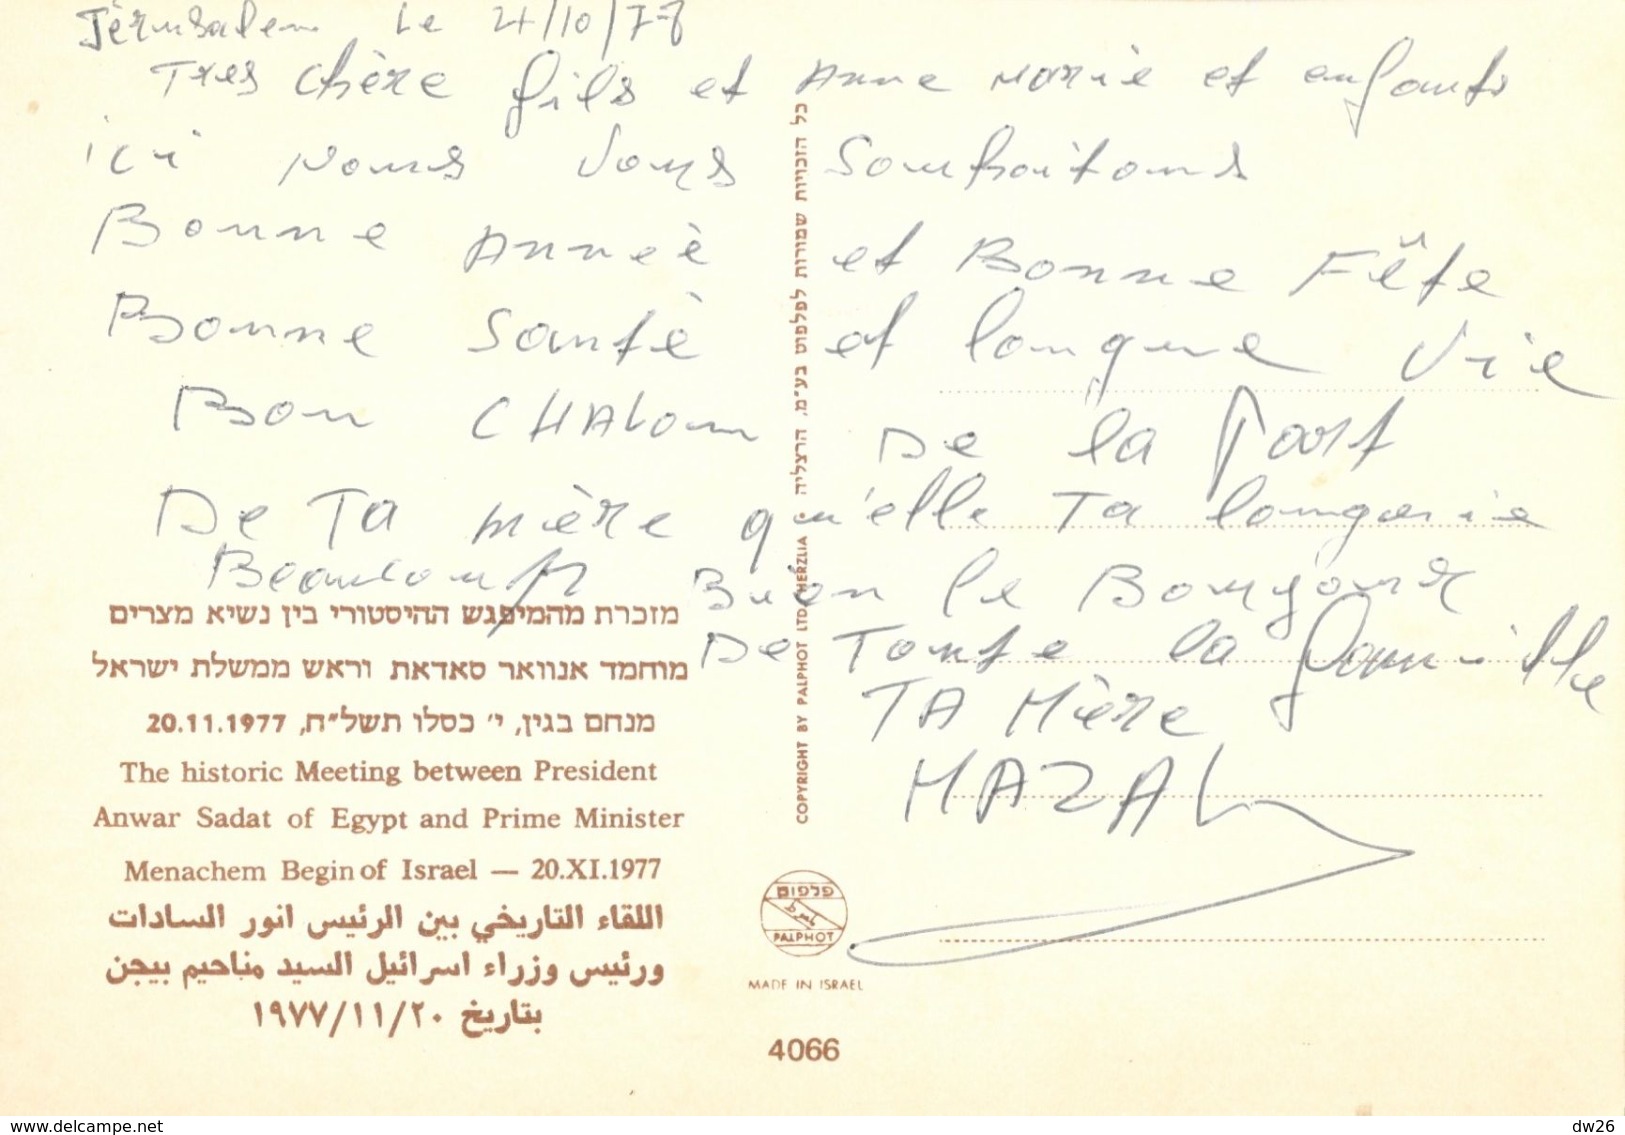 Jèrusalem Le 4/10/78
Tres chère fils et Anne Marie et enfants
ici nous vous souhaitons
Bonne Anneè et Bonne Fête
Bonne Santè et longue vie
Bon CHALom De la Part
De TA mère qu'elle Ta langarie
Beaucoup Bien le Bonjour
De Toute la famille
TA Mère
MAZAL
מזכרת מהמיפגש ההיסטורי בין נשיא מצרים
מוחמד אנוואר סאדאת וראש ממשלת ישראל
מנחם בגין, י׳ כסלו תשל״ח, 20.11.1977
The historic Meeting between President
Anwar Sadat of Egypt and Prime Minister
Menachem Begin of Israel — 20.XI.1977
اللقاء التاريخي بين الرئيس انور السادات
ورئيس وزراء اسرائيل السيد مناحيم بيجن
بتاريخ ١٩٧٧/١١/٢٠
COPYRIGHT BY PALPHOT LTD. HERZLIA • כל הזכויות שמורות לפלפוט בע״מ. הרצליה
פלפוט
PALPHOT
MADE IN ISRAEL
4066
https://www.delcampe.net
dw26